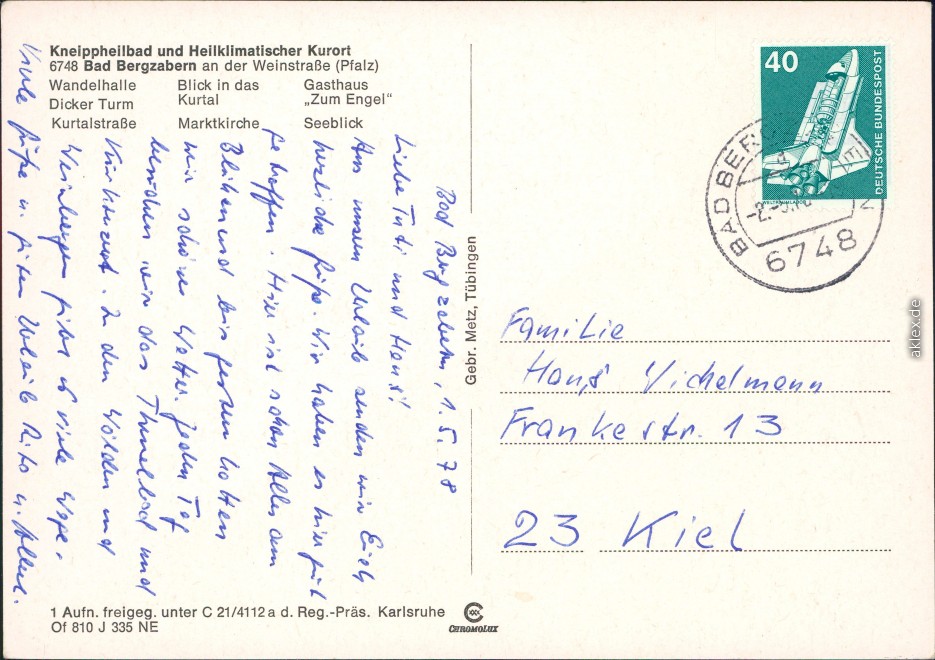 Kneippheilbad und Heilklimatischer Kurort
6748 Bad Bergzabern an der Weinstraße (Pfalz)
Wandelhalle Blick in das Kurtal Gasthaus „Zum Engel“
Dicker Turm
Kurtalstraße Marktkirche Seeblick
Bad Bergzabern, 1.5.78
Liebe Tuti und Hans!
Aus unserm Urlaub senden wir Euch
herzliche Grüße. Wir haben es hier gut
getroffen. Hier ist schon Alles am
Blühen und bis gestern hatten
wir schönes Wetter. Jeden Tag
besuchen wir das Thermalbad und
Kurkonzert. In den Wälden und
Weinbergen gibt es viele Wege.
Viele Grüße u. guten Urlaub
Gebr. Metz, Tübingen
40
DEUTSCHE BUNDESPOST
BAD BER
-2.-5.
6748
Familie
Hans Vichelmann
Frankestr. 13
23 Kiel
1 Aufn. freigeg. unter C 21/4112 a d. Reg.-Präs. Karlsruhe
Of 810 J 335 NE
CHROMOLUX
aklex.de